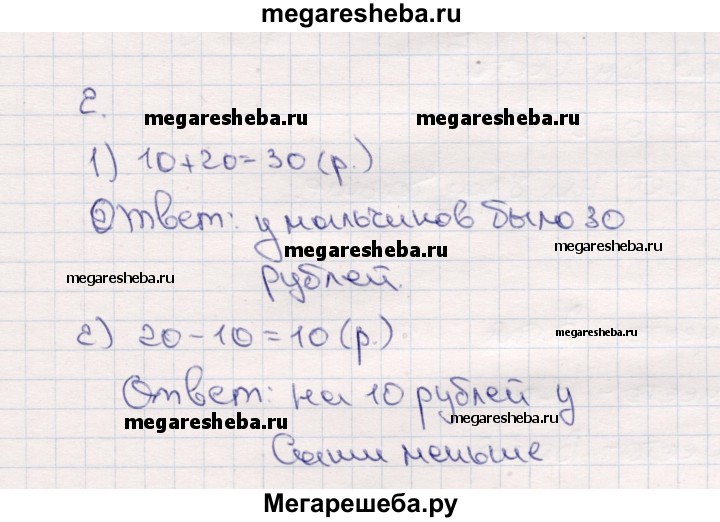 megaresheba.ru
2.
megaresheba.ru megaresheba.ru
1) 10+20=30 (р.)
Ответ: у мальчиков было 30
megaresheba.ru megaresheba.ru
megaresheba.ru рублей.
2) 20-10=10 (р.) megaresheba.ru
Ответ: на 10 рублей у
megaresheba.ru megaresheba.ru
Саши меньше
Мегарешеба.ру